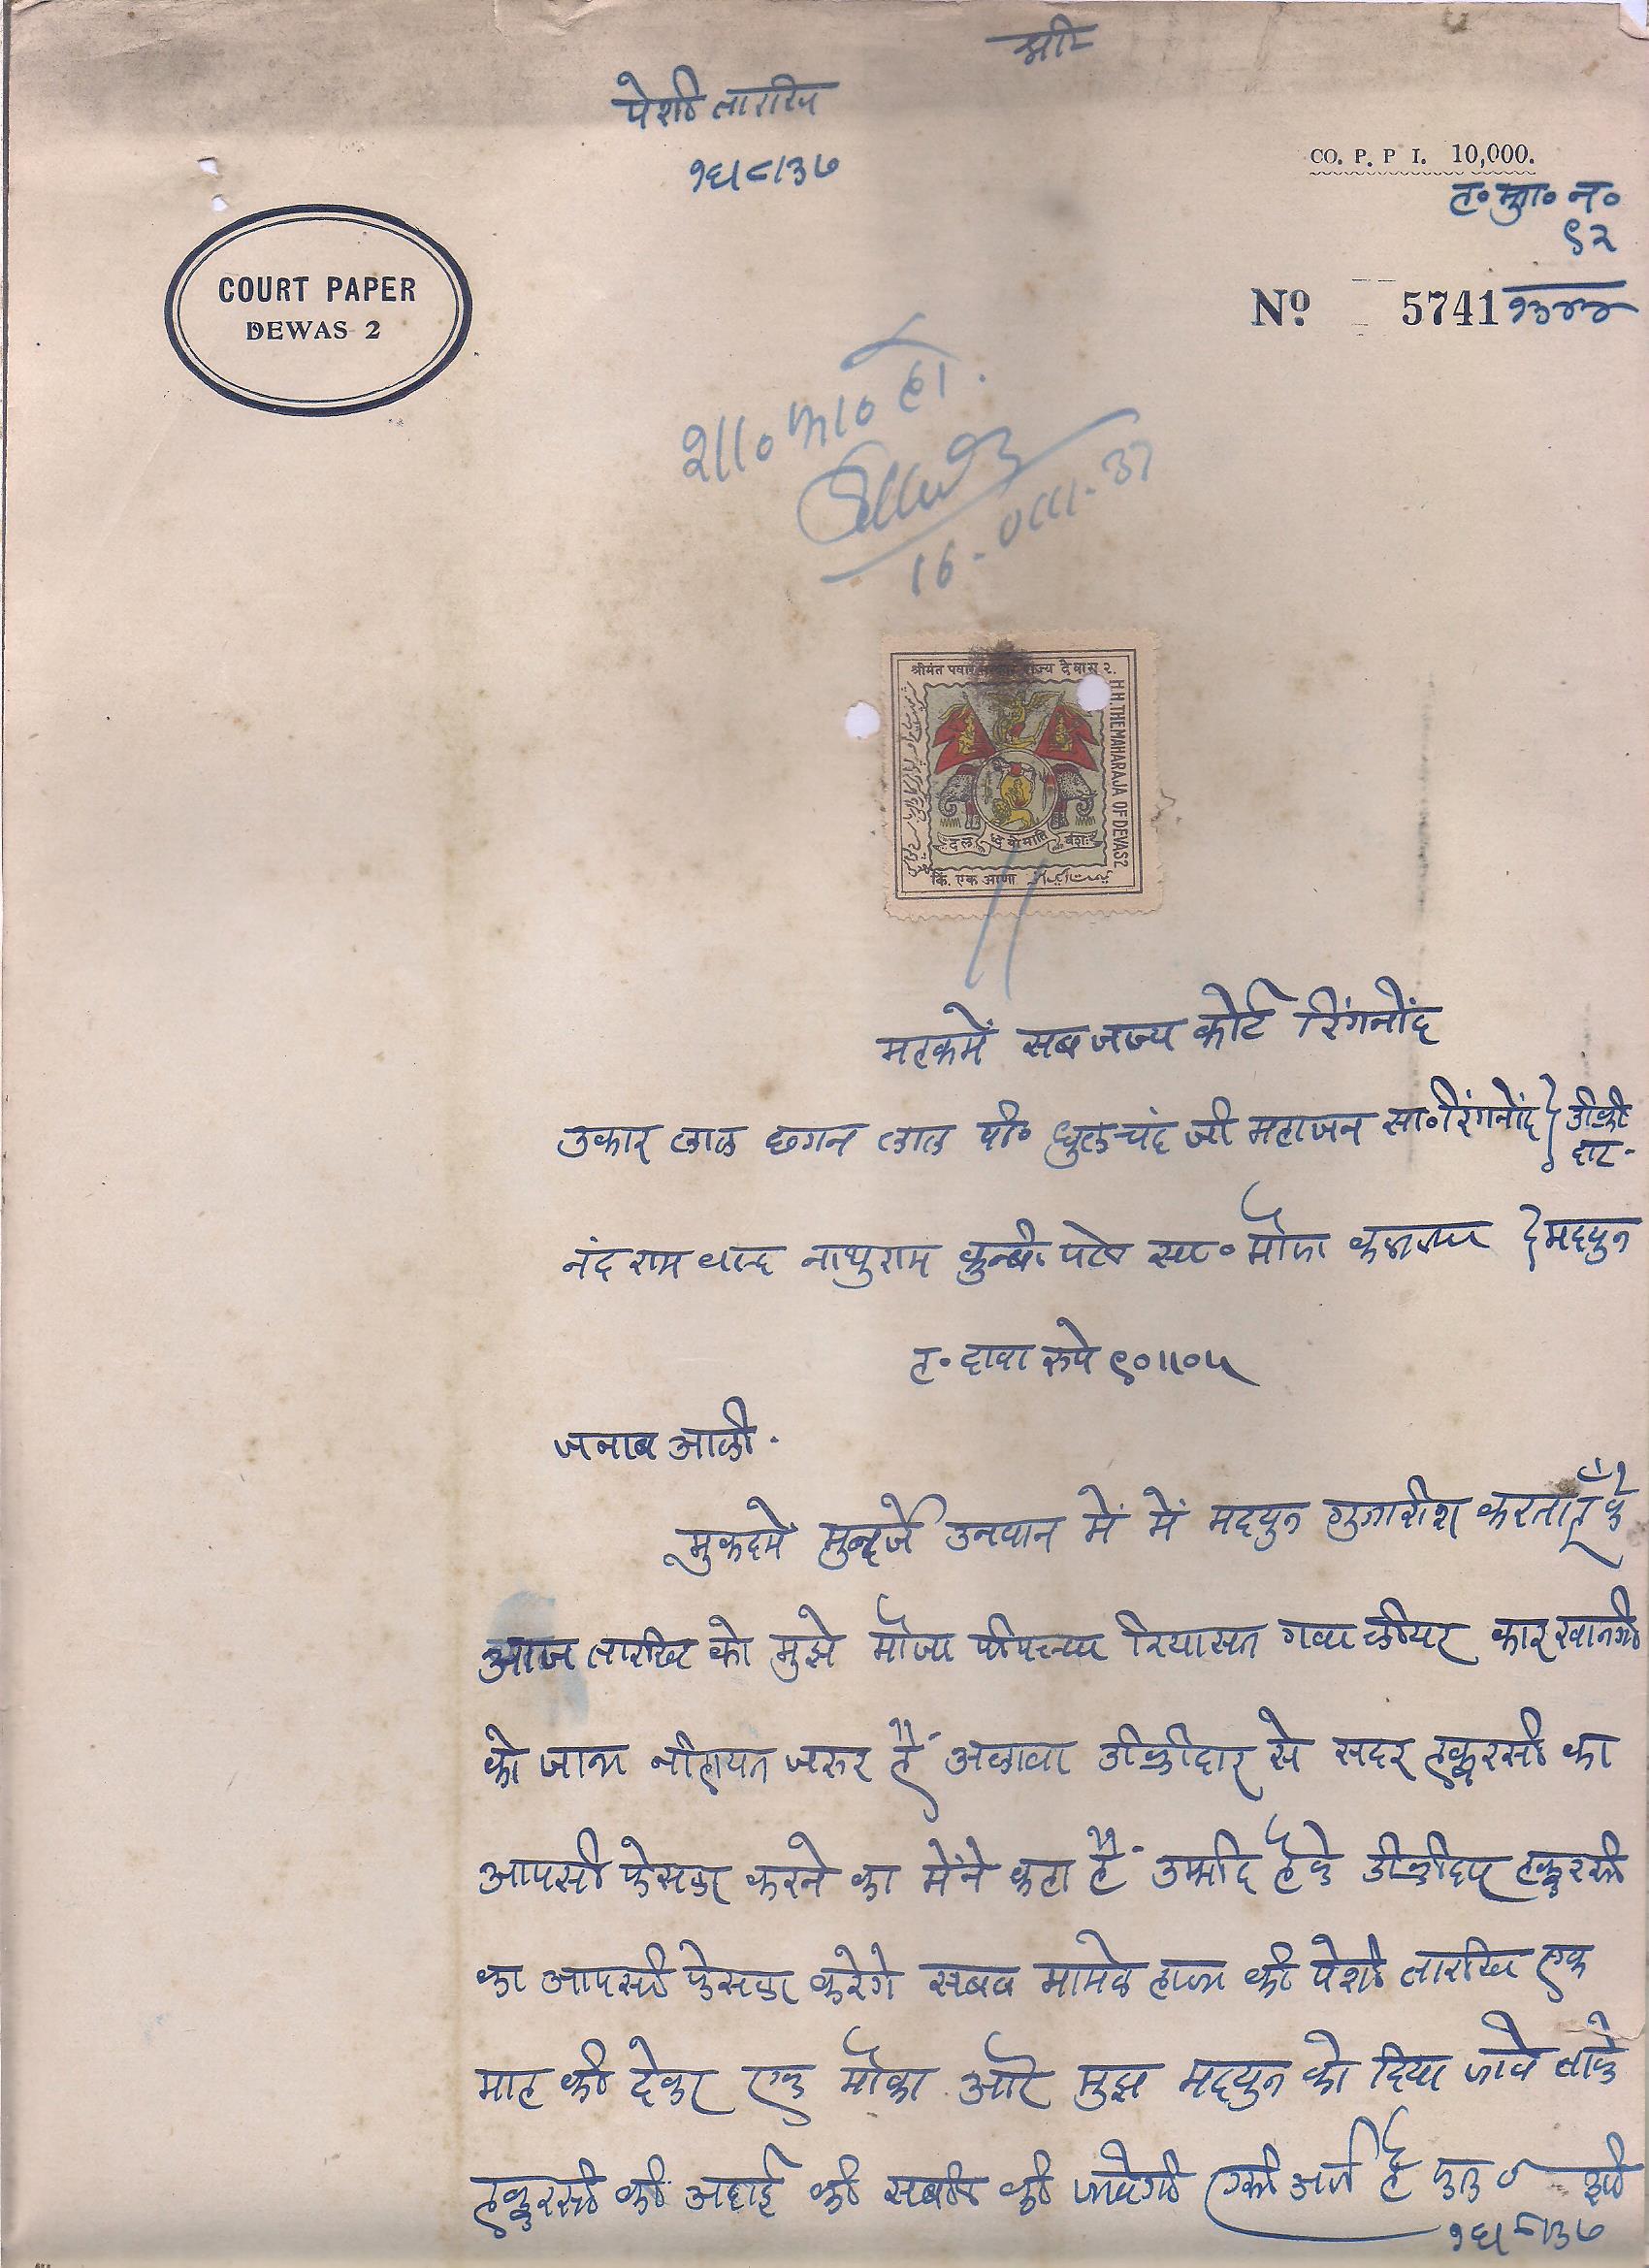 पेशी तारीख
१६।८।३७
CO. P. P I. 10,000.
ह० मुा० न०
९२
COURT PAPER
DEWAS 2
No 5741
शा० फा० हो.
16-VIII-37
श्रीमंत पवार राज्य देवास २.
H.H. THE MAHARAJA OF DEWAS 2
कि. एक आणा
महकमें सब जज्य कोर्ट रिंगनोंद
उकार लाल छगन लाल पी० धुलचंद जी महाजन सा० रिंगनोंद } डीक्री
दार.
नंदराम वल्द नाथुराम कुन्बी पटेल सा० मौजा } मदयुन
ह० दावा रुपे ९०॥०५
जनाब आली.
मुकदमे मुन्दर्जे उनवान में में मदयुन गुजारीश करता हूँ के
आज तारीख को मुझे मौजा रियासत गवालीयर कार खानगी
को जाना नीहायत जरुर है अलावा डीक्रीदार से सदर हुकुरसी का
आपसी फेसला करने का मेंने कहा है उम्मीद है के डीक्रीदार हुकुरसी
का आपसी फेसला करेगे सबब मामले हाजा की पेशी तारीख एक
माह की देकर एक मौका और मुझ मदयुन को दिया जावे ताके
हुकुरसी की अदाई की सबील की जावेगी एकी अर्ज है फक्त
१६।८।३७